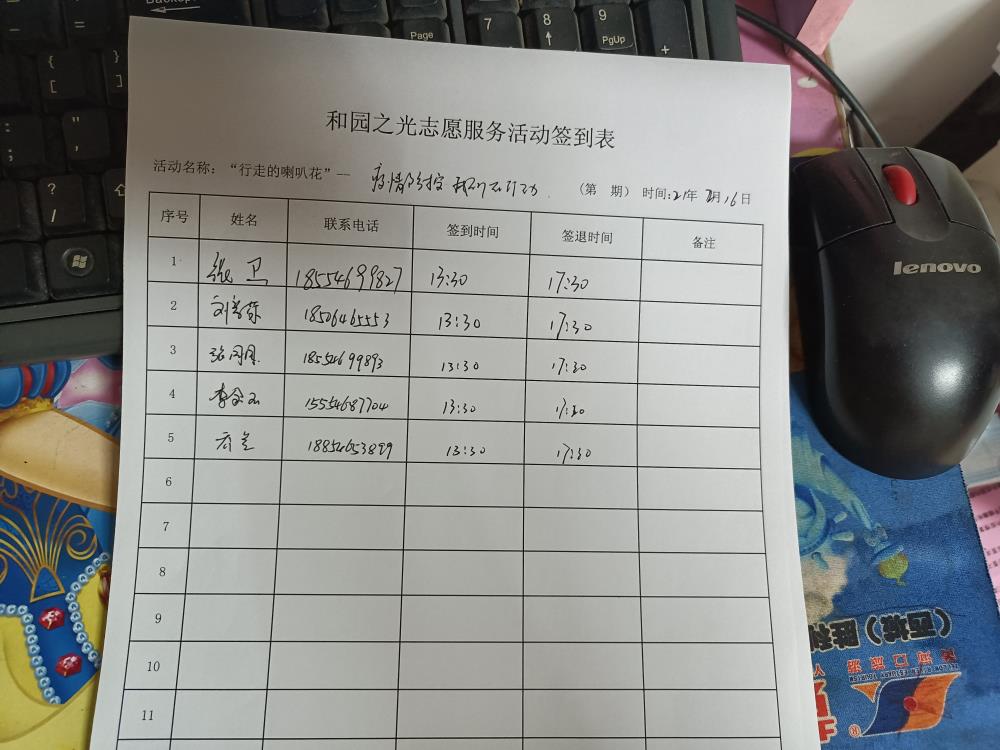 Backspace
Page
7
8
9
PgUp
+
{
[
}
]
:
;
"
,
?
/
Shift
和园之光志愿服务活动签到表
活动名称：“行走的喇叭花”—— 疫情防控 我们在行动 （第 期） 时间:21年 月16日
序号 姓名 联系电话 签到时间 签退时间 备注
1 张卫 18554699827 13:30 17:30
2 刘 18506465553 13:30 17:30
3 张 18554699893 13:30 17:30
4 李 15554687704 13:30 17:30
5 18854653899 13:30 17:30
6
7
8
9
10
11
lenovo
（西城）